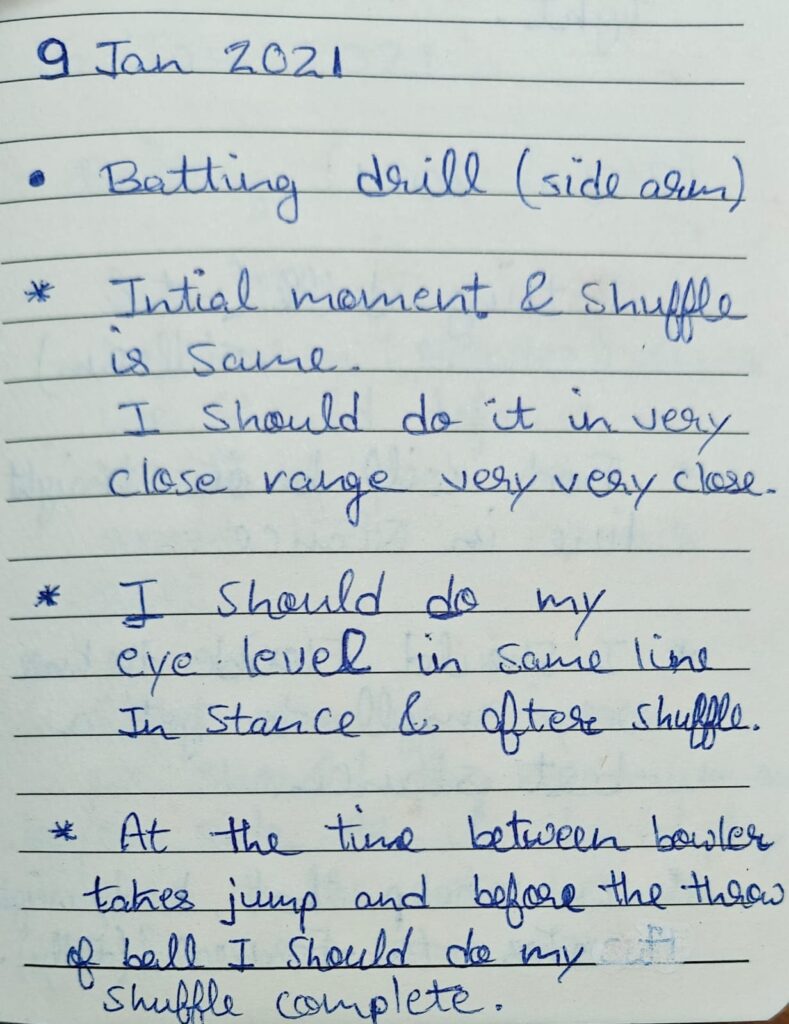 9 Jan 2021
• Batting drill (side arm)
* Intial moment & shuffle
is same.
I should do it in very
close range very very close.
* I should do my
eye level in same line
In stance & after shuffle.
* At the time between bowler
takes jump and before the throw
of ball I should do my
shuffle complete.